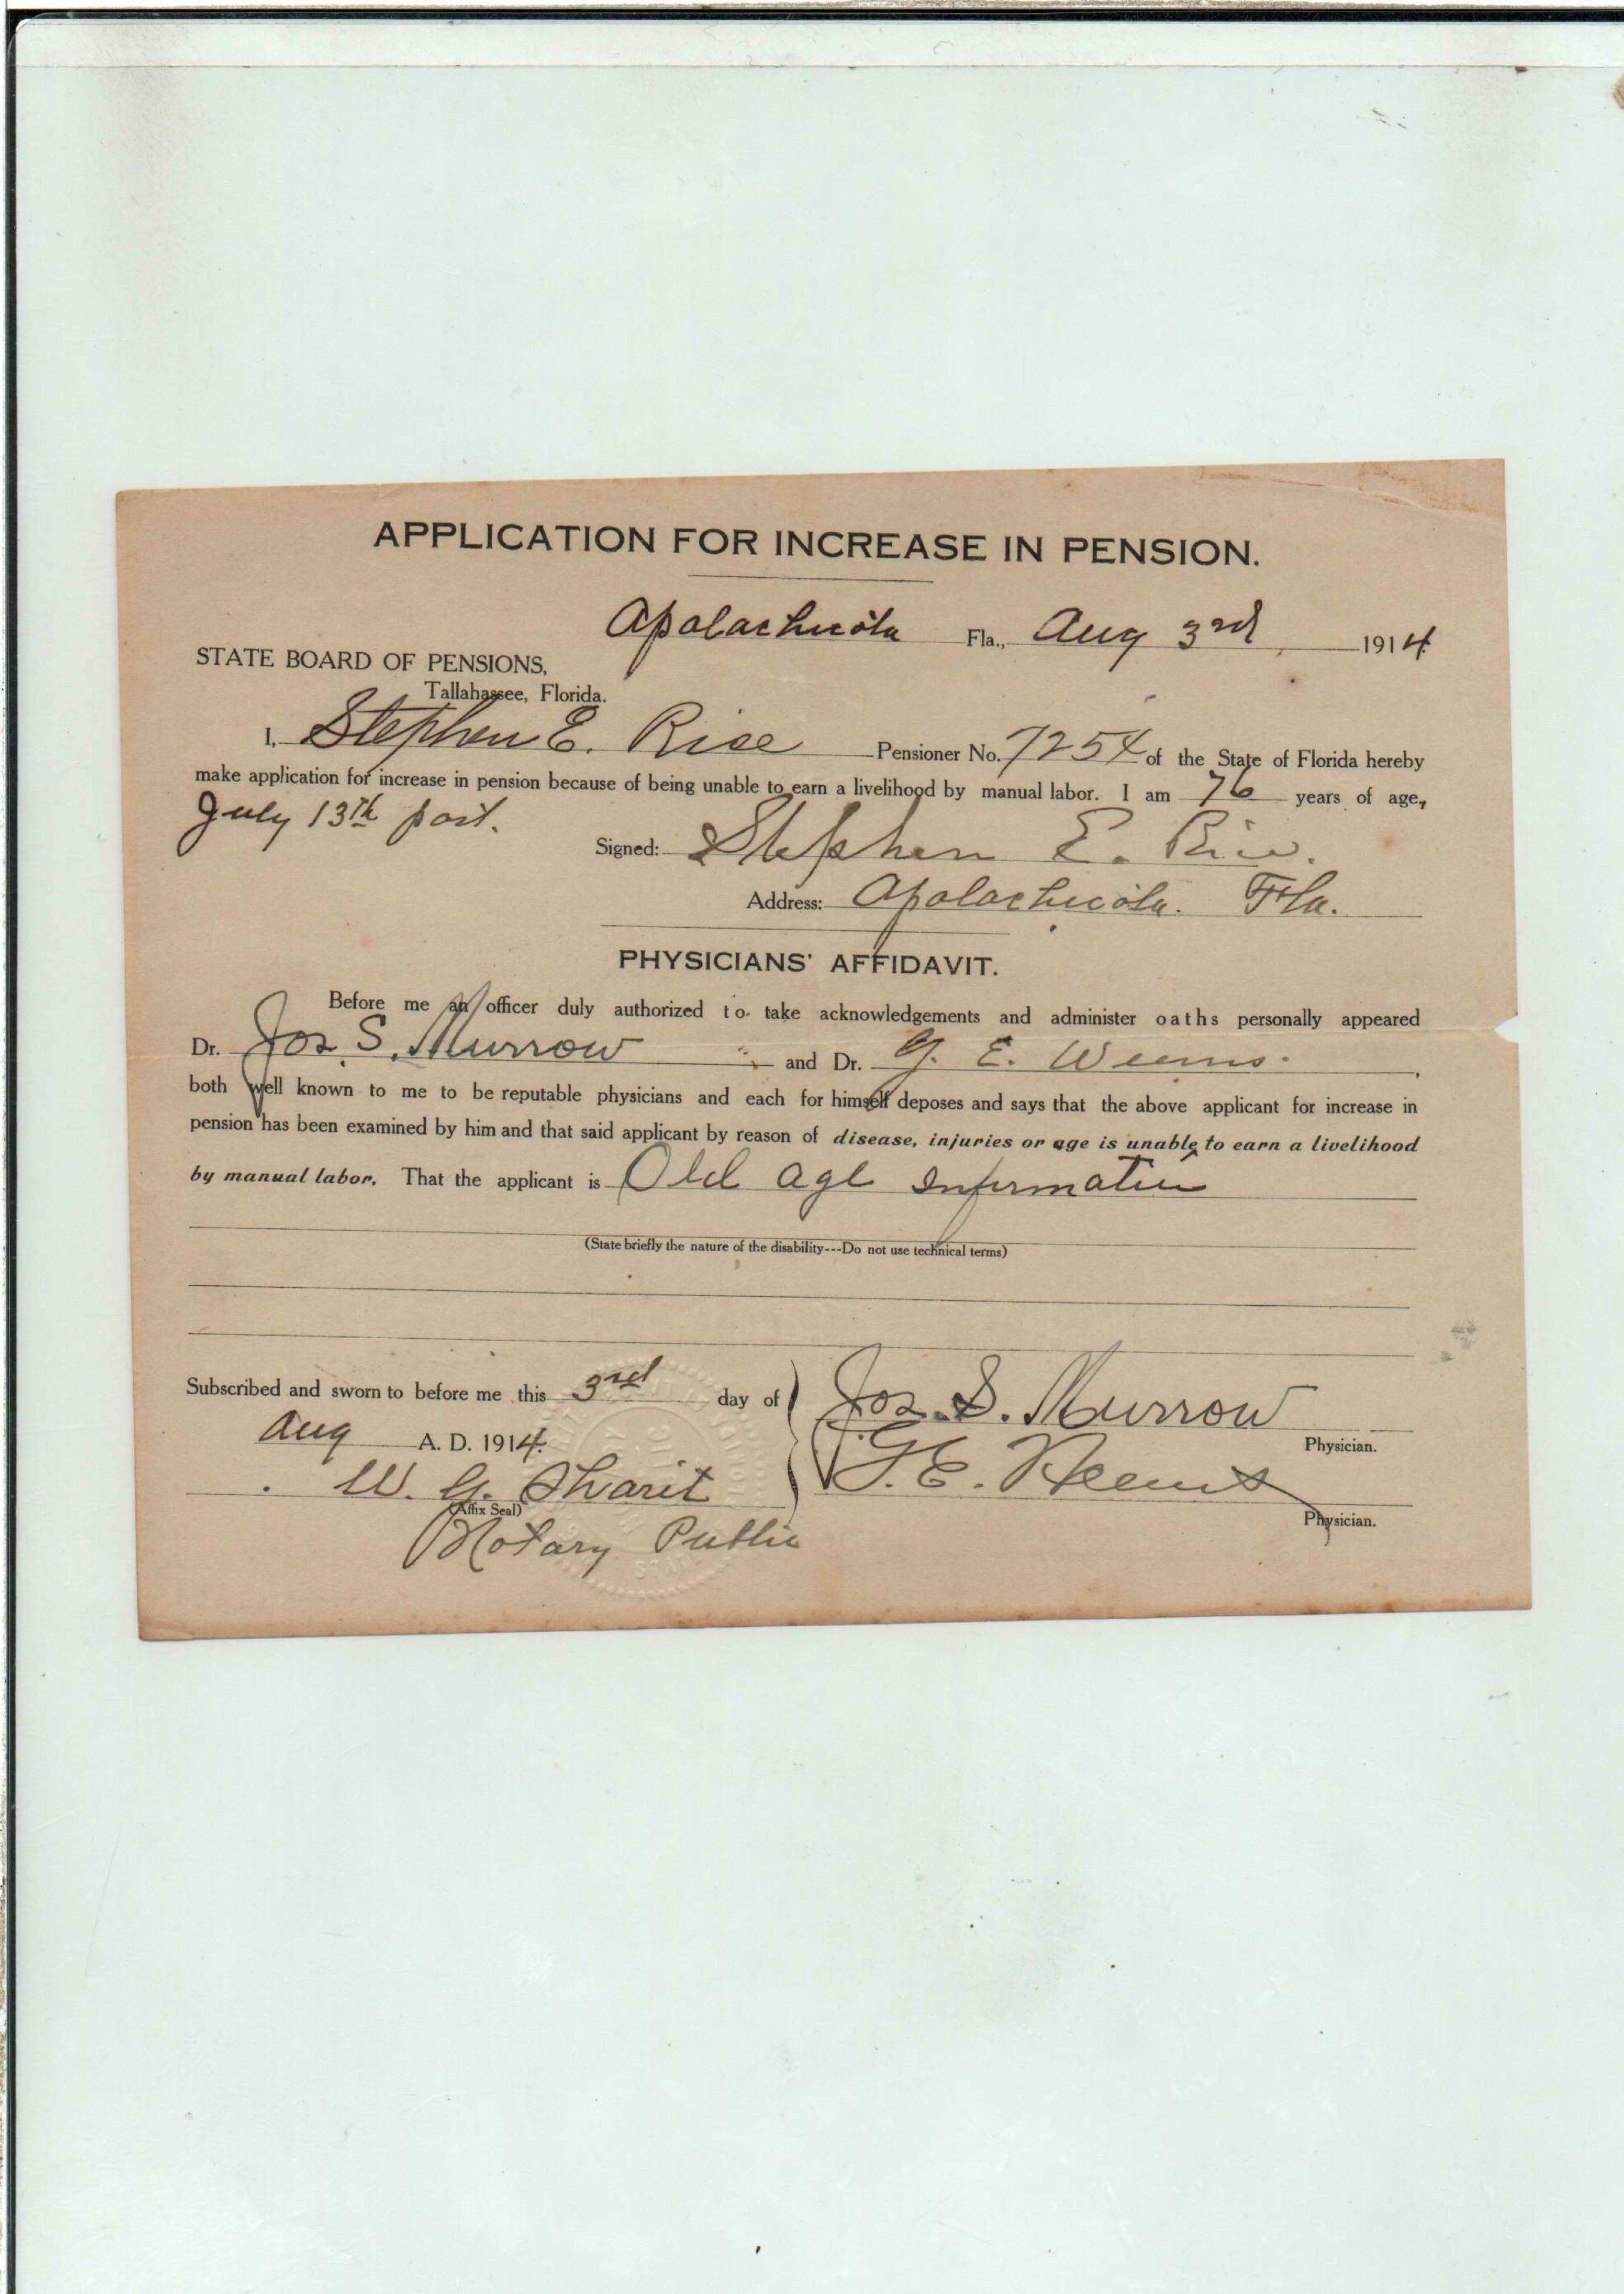 APPLICATION FOR INCREASE IN PENSION.
Apalachicola Fla., Aug 3rd 1914
STATE BOARD OF PENSIONS,
Tallahassee, Florida.
I, Stephen E. Rice Pensioner No. 7254 of the State of Florida hereby
make application for increase in pension because of being unable to earn a livelihood by manual labor. I am 76 years of age,
July 13th past.
Signed: Stephen E. Rice.
Address: Apalachicola. Fla.
PHYSICIANS' AFFIDAVIT.
Before me an officer duly authorized to take acknowledgements and administer oaths personally appeared
Dr. Jos. S. Murrow and Dr. G. E. Weems.
both well known to me to be reputable physicians and each for himself deposes and says that the above applicant for increase in
pension has been examined by him and that said applicant by reason of disease, injuries or age is unable to earn a livelihood
by manual labor. That the applicant is Old age
(State briefly the nature of the disability---Do not use technical terms)
Subscribed and sworn to before me this 3rd day of
Aug A. D. 1914.
Jos. S. Murrow
Physician.
W. G. Sharit
(Affix Seal)
G. E. Weems
Physician.
Notary Public